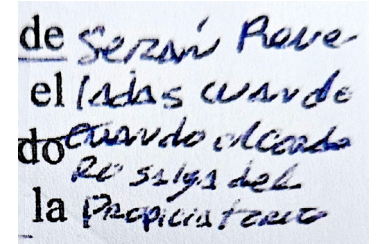 de Serán Reve
el ladas cuando
do cuando el Corde
Ro salga del
la Propiciatorio